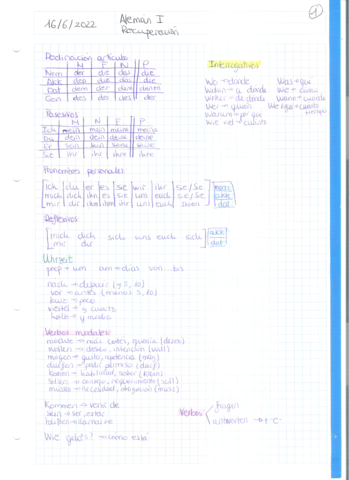 16/6/2022
Alemán I
Recuperación
1
Declinación artículo
M F N P
Nom der die das die
Akk den die das die
Dat dem der dem denen
Gen des der des der
Interrogativos
Wo → donde
Wohin → a donde
Woher → de donde
Wer → quien
Warum → por que
Wie viel → cuanto
Was → que
Wie → como
Wann → cuando
Posesivos
M N F P
Ich mein mein meine meine
Du dein dein deine deine
Er sein sein seine seine
Sie ihr ihr ihre ihre
Pronombres personales
Ich du er es sie wir ihr sie/Sie nom
mich dich ihn es sie uns euch sie/Sie akk
mir dir ihm ihm ihr uns euch ihnen dat
Reflexivos
mich dich sich uns euch sich akk
mir dir dat
Uhrzeit
prep → um am → días von... bis
nach → después (y 5, 10)
vor → antes (menos 5, 10)
kurz → poco
viertel → y cuarto
halb → y media
Verbos modales
wollen → deseo, intención (will)
mögen → gusto, apetencia (mag)
dürfen → pedir permiso (darf)
können → habilidad, saber (kann)
sollen → consejo, (soll)
müssen → necesidad, obligación (muss)
Kommen → venir de
sein → ser, estar
heißen → llamarse
Verbos
fragen
antworten
Wie geht's? → como está